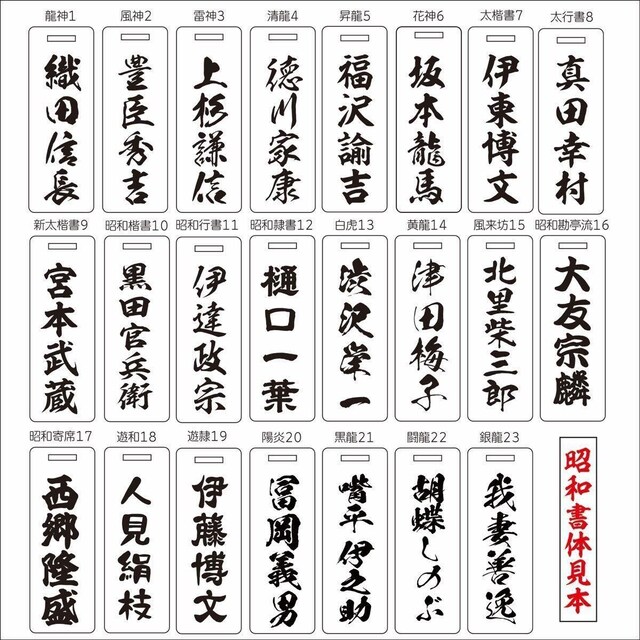 龍神1
風神2
雷神3
清龍4
昇龍5
花神6
太楷書7
太行書8
織田信長
豊臣秀吉
上杉謙信
徳川家康
福沢諭吉
坂本龍馬
伊東博文
真田幸村
新太楷書9
昭和楷書10
昭和行書11
昭和隷書12
白虎13
黄龍14
風来坊15
昭和勘亭流16
宮本武蔵
黒田官兵衛
伊達政宗
樋口一葉
渋沢栄一
津田梅子
北里柴三郎
大友宗麟
昭和寄席17
遊和18
遊隷19
陽炎20
黒龍21
闘龍22
銀龍23
西郷隆盛
人見絹枝
伊藤博文
冨岡義勇
嘴平伊之助
胡蝶しのぶ
我妻善逸
昭和書体見本